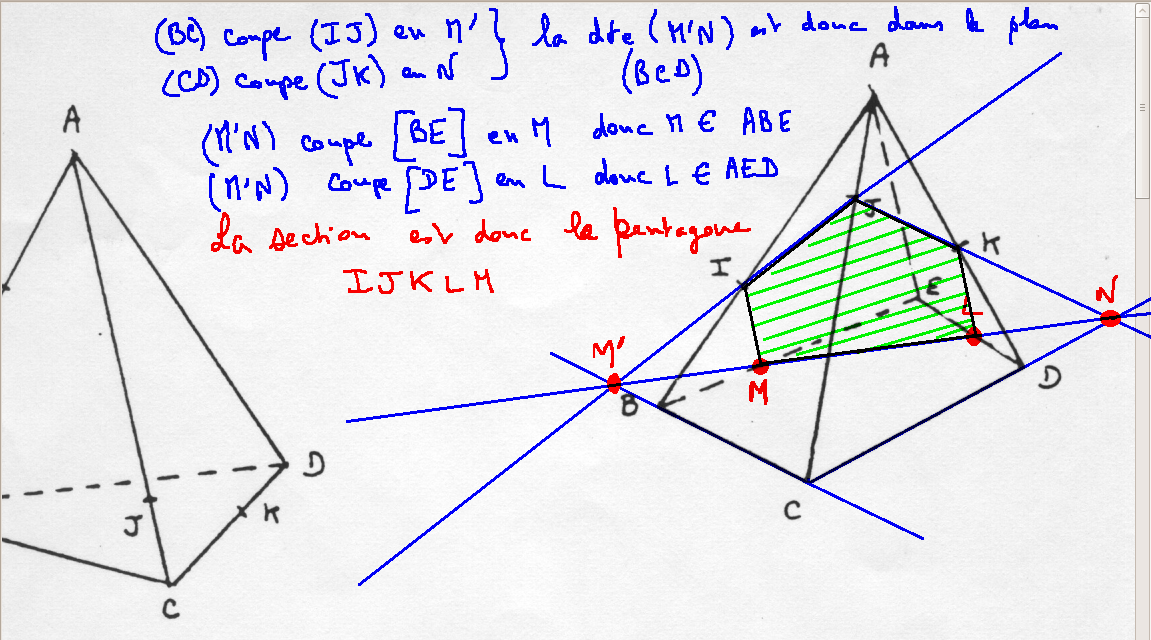 (BC) coupe (IJ) en M' } la dte (M'N) est donc dans le plan
(CD) coupe (JK) en N (BCD)
(M'N) coupe [BE] en M donc M ∈ ABE
(M'N) coupe [DE] en L donc L ∈ AED
La section est donc le pentagone
IJKLM
A
D
J
K
C
A
J
K
I
E
L
N
M'
B
M
D
C